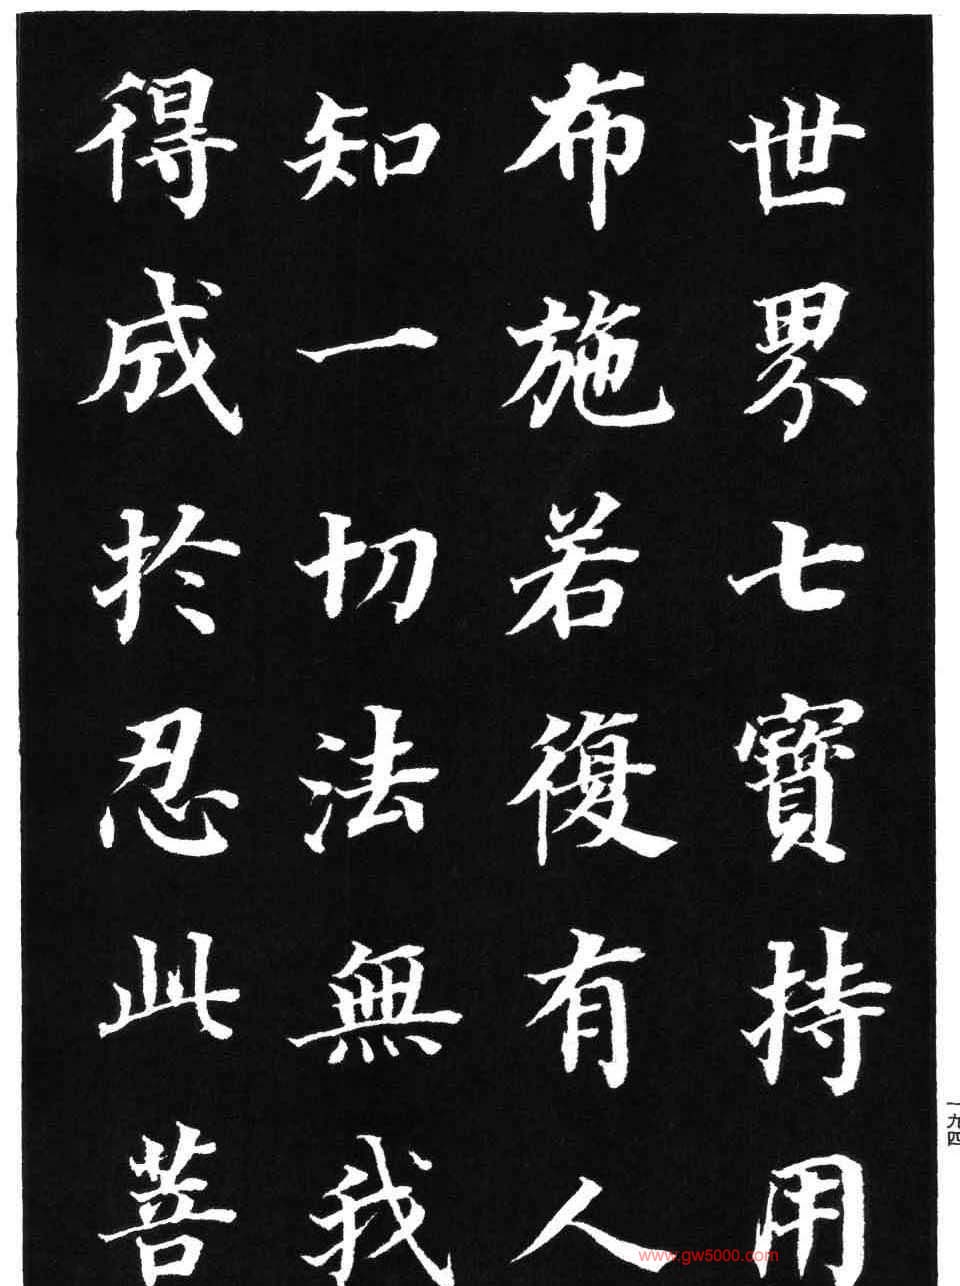 世界七寶持用
布施若復有人
知一切法無我
得成於忍此菩
一九四
www.gw5000.com